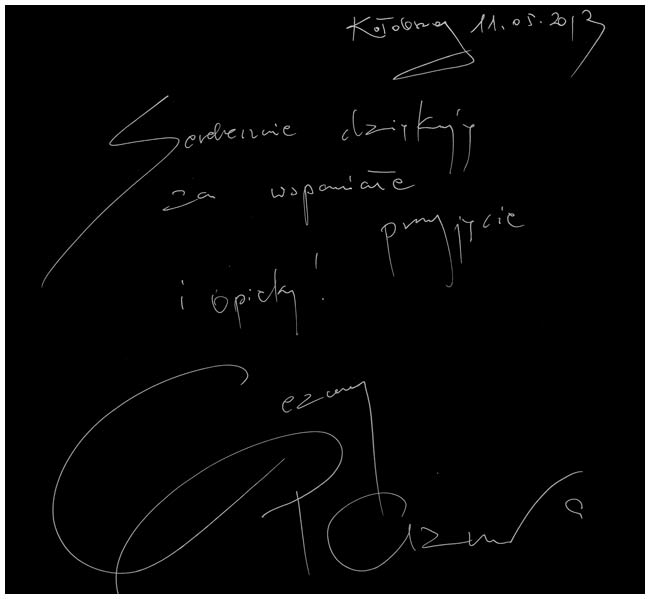 Kołobrzeg 11.05.2013
Serdecznie dziękuję
za wspaniałe
przyjęcie
i opiekę!
Cezary
Pazura